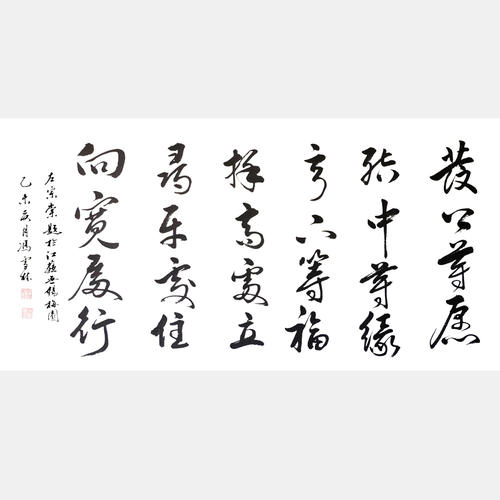 發上等愿
结中等緣
享下等福
擇高處立
尋平處住
向寬處行
左宗棠題於江蘇無錫梅園
乙未年月馮雪林